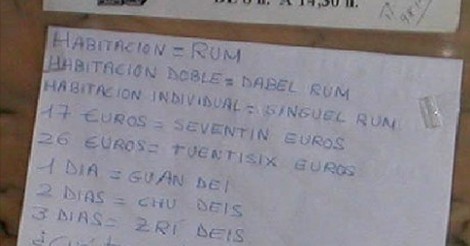 DE 8 h. A 14,30 h.
HABITACION = RUM
HABITACION DOBLE = DABEL RUM
HABITACION INDIVIDUAL = SINGUEL RUM
17 EUROS = SEVENTIN EUROS
26 EUROS = TUENTISIX EUROS
1 DIA = GUAN DEI
2 DIAS = CHU DEIS
3 DIAS = ZRÍ DEIS